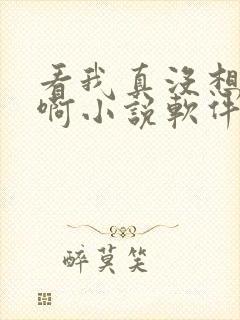 看我真没想
啊小説軟件
醉莫笑